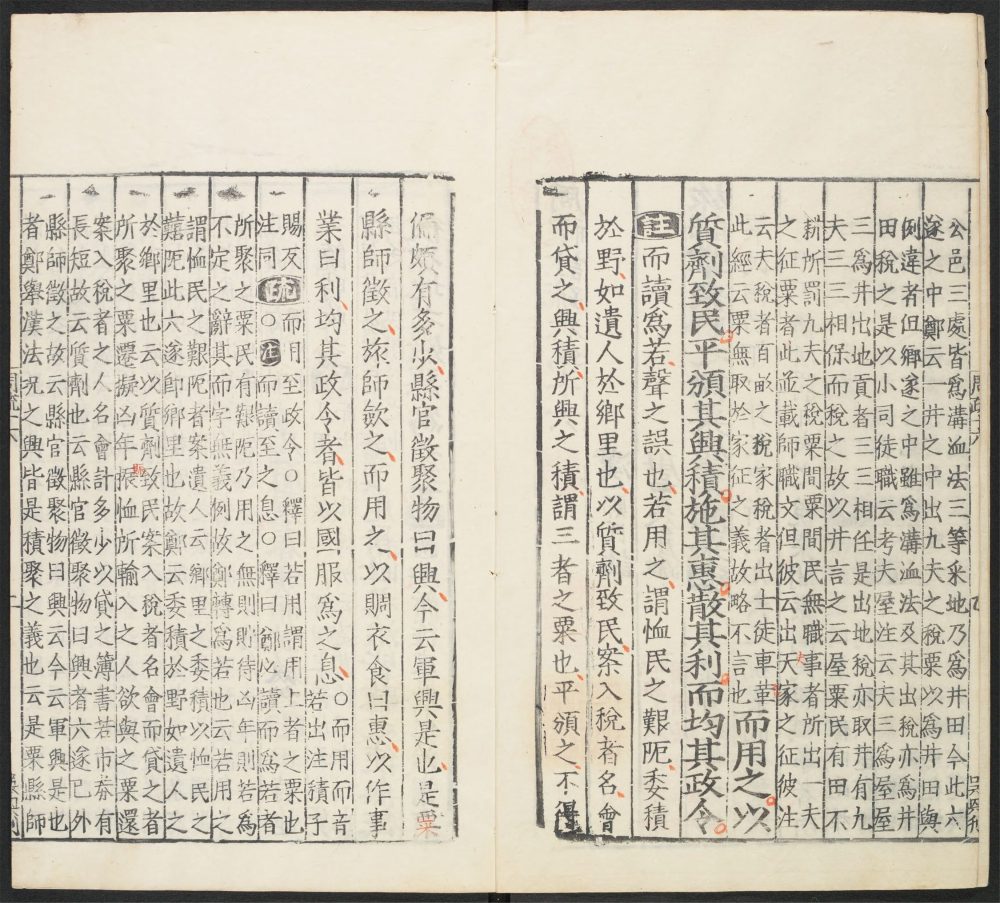 公邑三處皆爲溝洫法三等采地乃爲井田今此六
遂之中鄭云一井之中出九夫之稅粟以爲井田與
例違者但鄉遂之中雖爲溝洫法及其出稅亦爲井
田稅之是以小司徒職云考夫屋注云夫三爲屋屋
三爲井出地貢者三三相任是出地稅亦取井有九
夫三三相保而稅之故以井言之云屋粟民有田不
耕所罰九夫之稅粟間粟間民無職事者所出一夫
之征粟者此並載師職文但彼云出夫家之征彼注
云夫稅者百畝之稅家稅者出士徒車輦
此經云粟無取於家征之義故略不言也
而用之以
質劑致民平頒其興積施其惠散其利而均其政令
註而讀爲若聲之誤也若用之謂恤民之艱阨委積
於野如遺人於鄉里也以質劑致民案入稅者名會
而貸之興積所興之積謂三者之粟也平頒之不得
偏頗有多少縣官徵聚物曰興今云軍興是也是粟
縣師徵之旅師斂之而用之以賙衣食曰惠以作事
業曰利均其政令者皆以國服爲之息
○而用而音
若出注積子
賜反
注同
疏
而用至政令○釋曰若用謂用上者之粟也
○注而讀至之息○釋曰鄭以讀而爲若者
所聚之粟民有艱阨乃用之無則待凶年則若爲
不定之辭其而字無義例故鄭轉爲若也云若用之
謂恤民之艱阨者案遺人云鄉里之委積以恤民之
艱阨此六遂卽鄉里也故鄭云委積於野如遺人之
於鄉里也云以質劑致民案入稅者名會而貸之者
所聚之粟還擬凶年振恤所輸入之人欲與之粟還
案入稅者之人名會計多少以貸之簿書若市劵有
長短故云質劑也云縣官徵聚物曰興者六遂巳外
縣師徵之故云縣官徵聚物曰興云今云軍興是也
者鄭舉漢法況之興皆是積聚之義也云是粟縣師